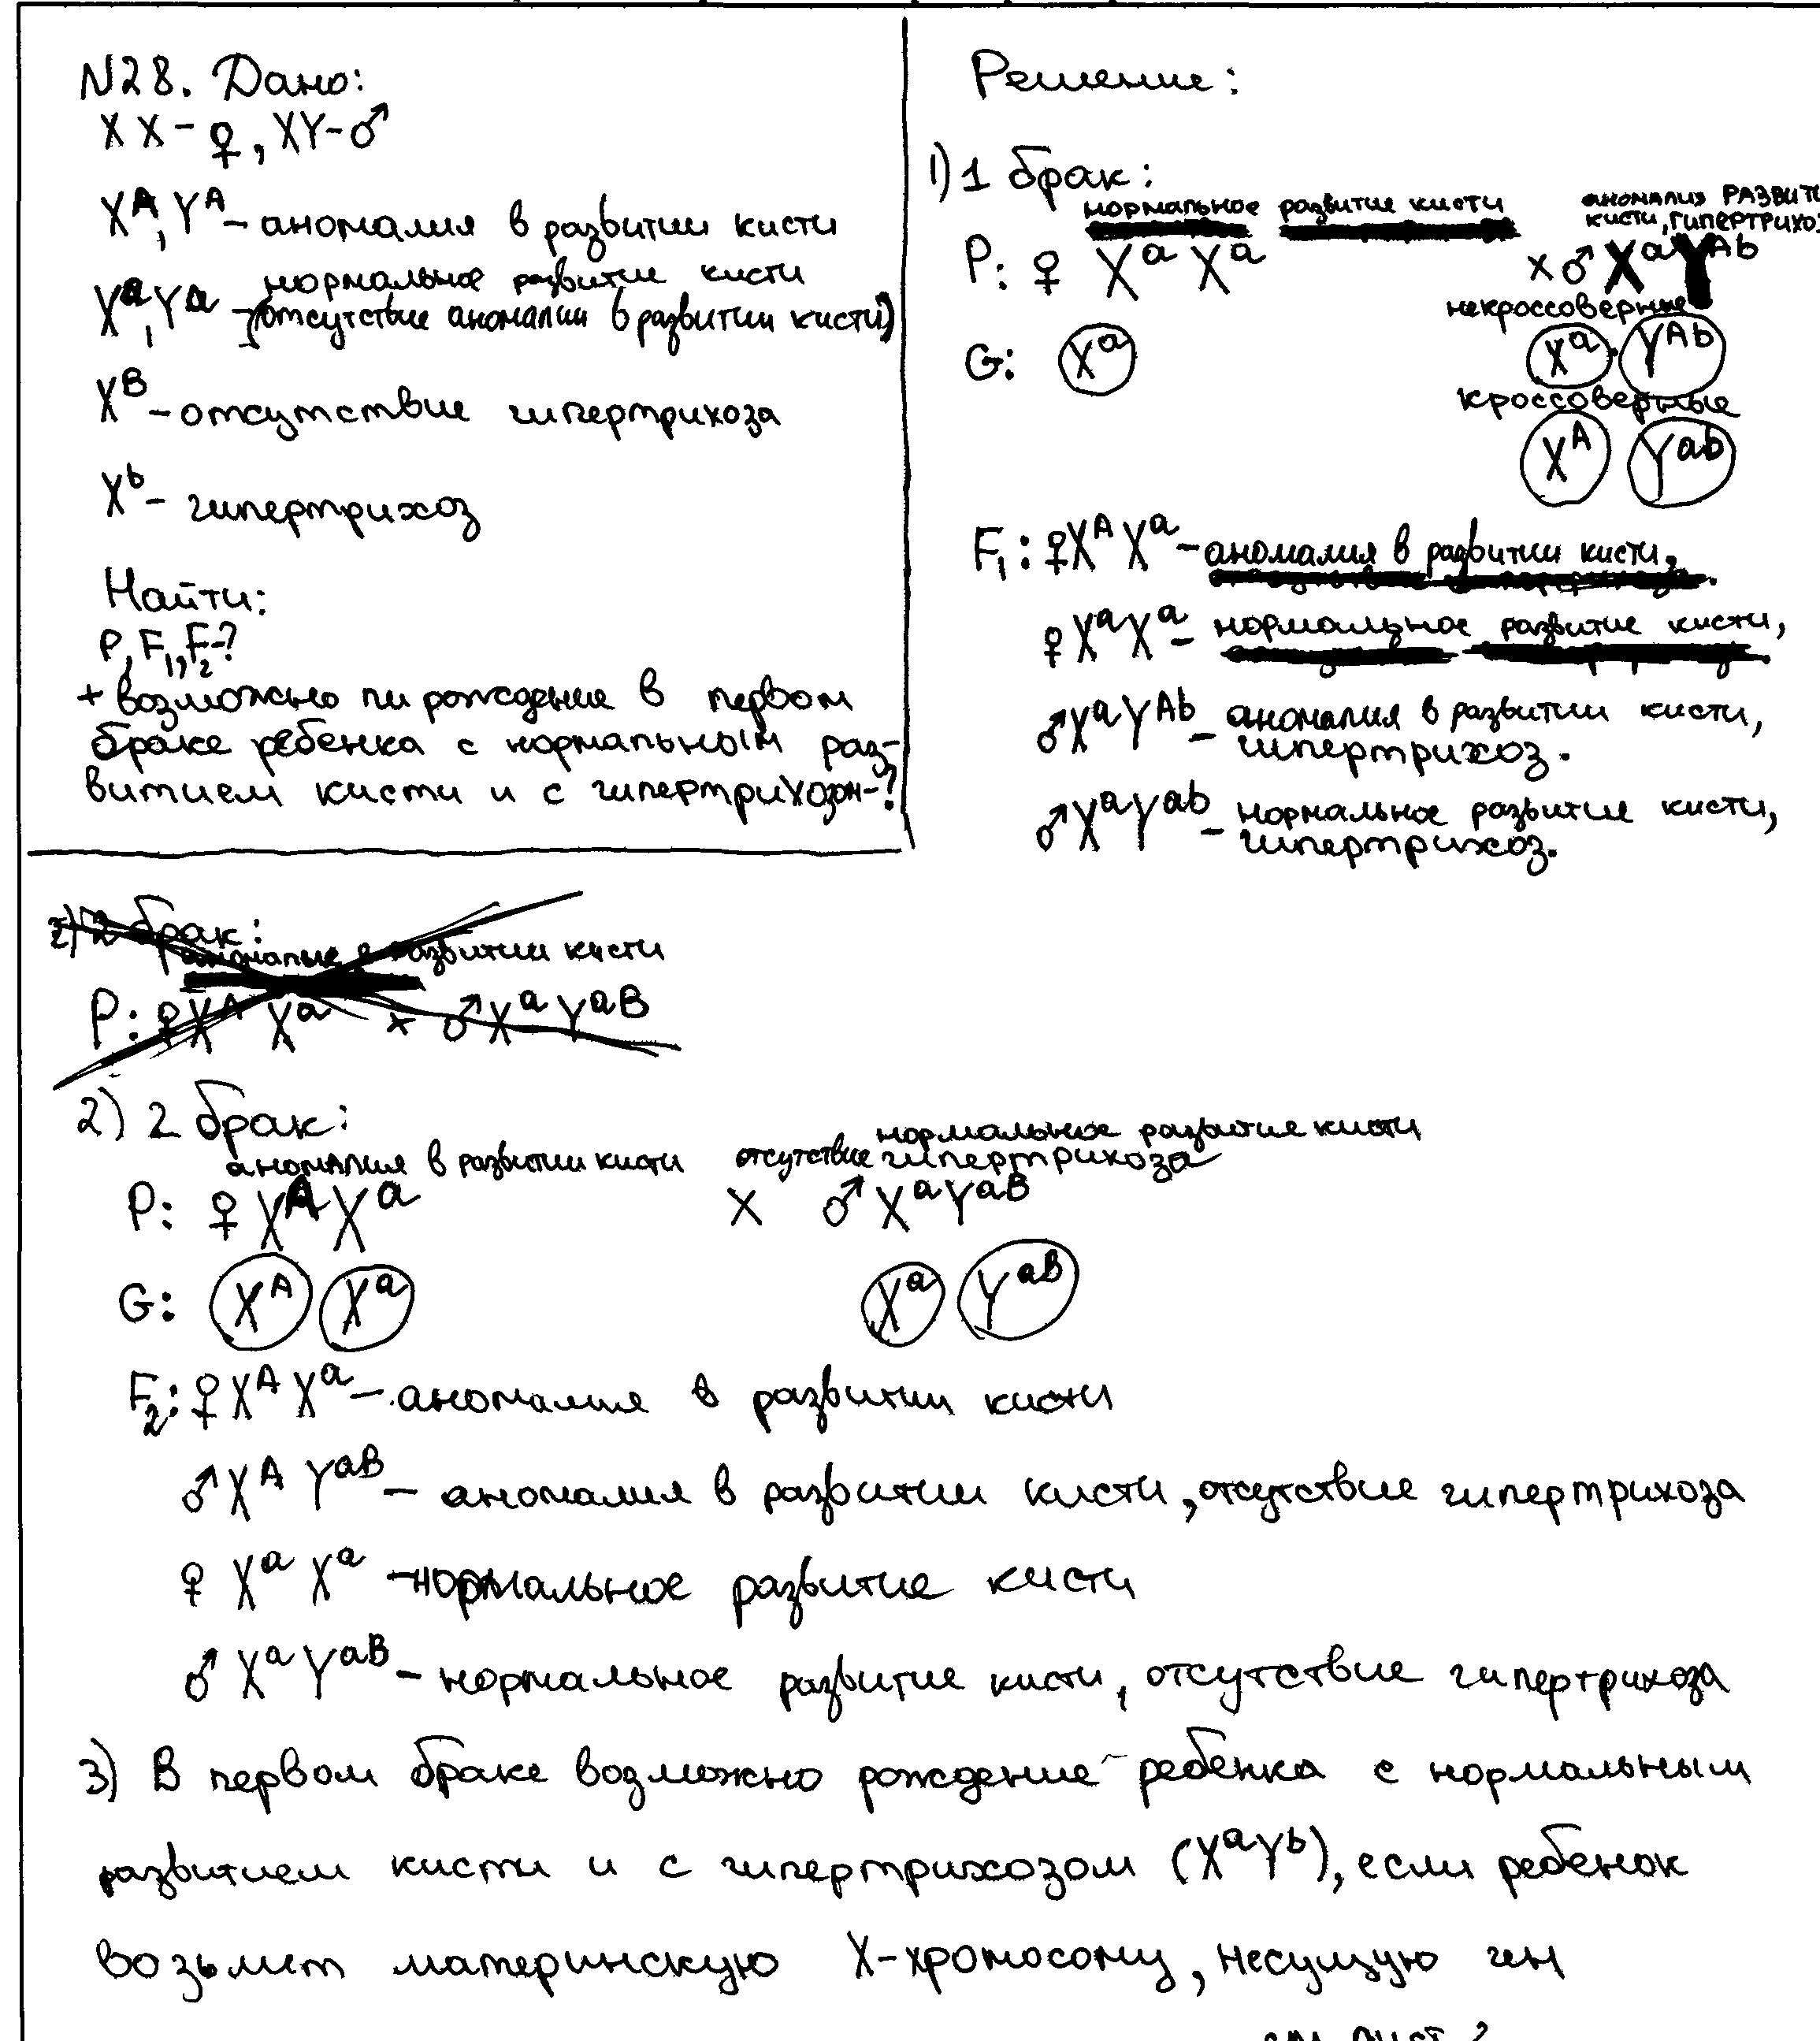 N28. Дано:
XX - ♀, XY - ♂
X^A, Y^A - аномалия в развитии кисти
нормальное развитие кисти
X^a, Y^a - (отсутствие аномалии в развитии кисти)
X^B - отсутствие гипертрихоза
X^b - гипертрихоз
Найти:
P, F₁, F₂-?
+ возможно ли рождение в первом
браке ребенка с нормальным раз-
витием кисти и с гипертрихозом-?
Решение:
1) 1 брак:
нормальное развитие кисти
аномалия РАЗВИТИ
кисти, ГИПЕРТРИХОЗ
P: ♀ X^a X^a × ♂ X^a Y^Ab
некроссоверные
G: X^a X^a, Y^Ab
кроссоверные
X^A Y^ab
F₁: ♀ X^A X^a - аномалия в развитии кисти,
♀ X^a X^a - нормальное развитие кисти,
♂ X^a Y^Ab - аномалия в развитии кисти,
гипертрихоз.
♂ X^a Y^ab - нормальное развитие кисти,
гипертрихоз.
2) 2 брак:
аномалие в развитии кисти
P: ♀ X^A X^a × ♂ X^a Y^aB
2) 2 брак:
нормальное развитие кисти
аномалия в развитии кисти отсутствие гипертрихоза
P: ♀ X^A X^a × ♂ X^a Y^aB
G: X^A X^a X^a Y^aB
F₂: ♀ X^A X^a - аномалия в развитии кисти
♂ X^A Y^aB - аномалия в развитии кисти, отсутствие гипертрихоза
♀ X^a X^a - нормальное развитие кисти
♂ X^a Y^aB - нормальное развитие кисти, отсутствие гипертрихоза
3) В первом браке возможно рождение ребенка с нормальным
развитием кисти и с гипертрихозом (X^a Y^b), если ребенок
возьмет материнскую X-хромосому, несущую ген